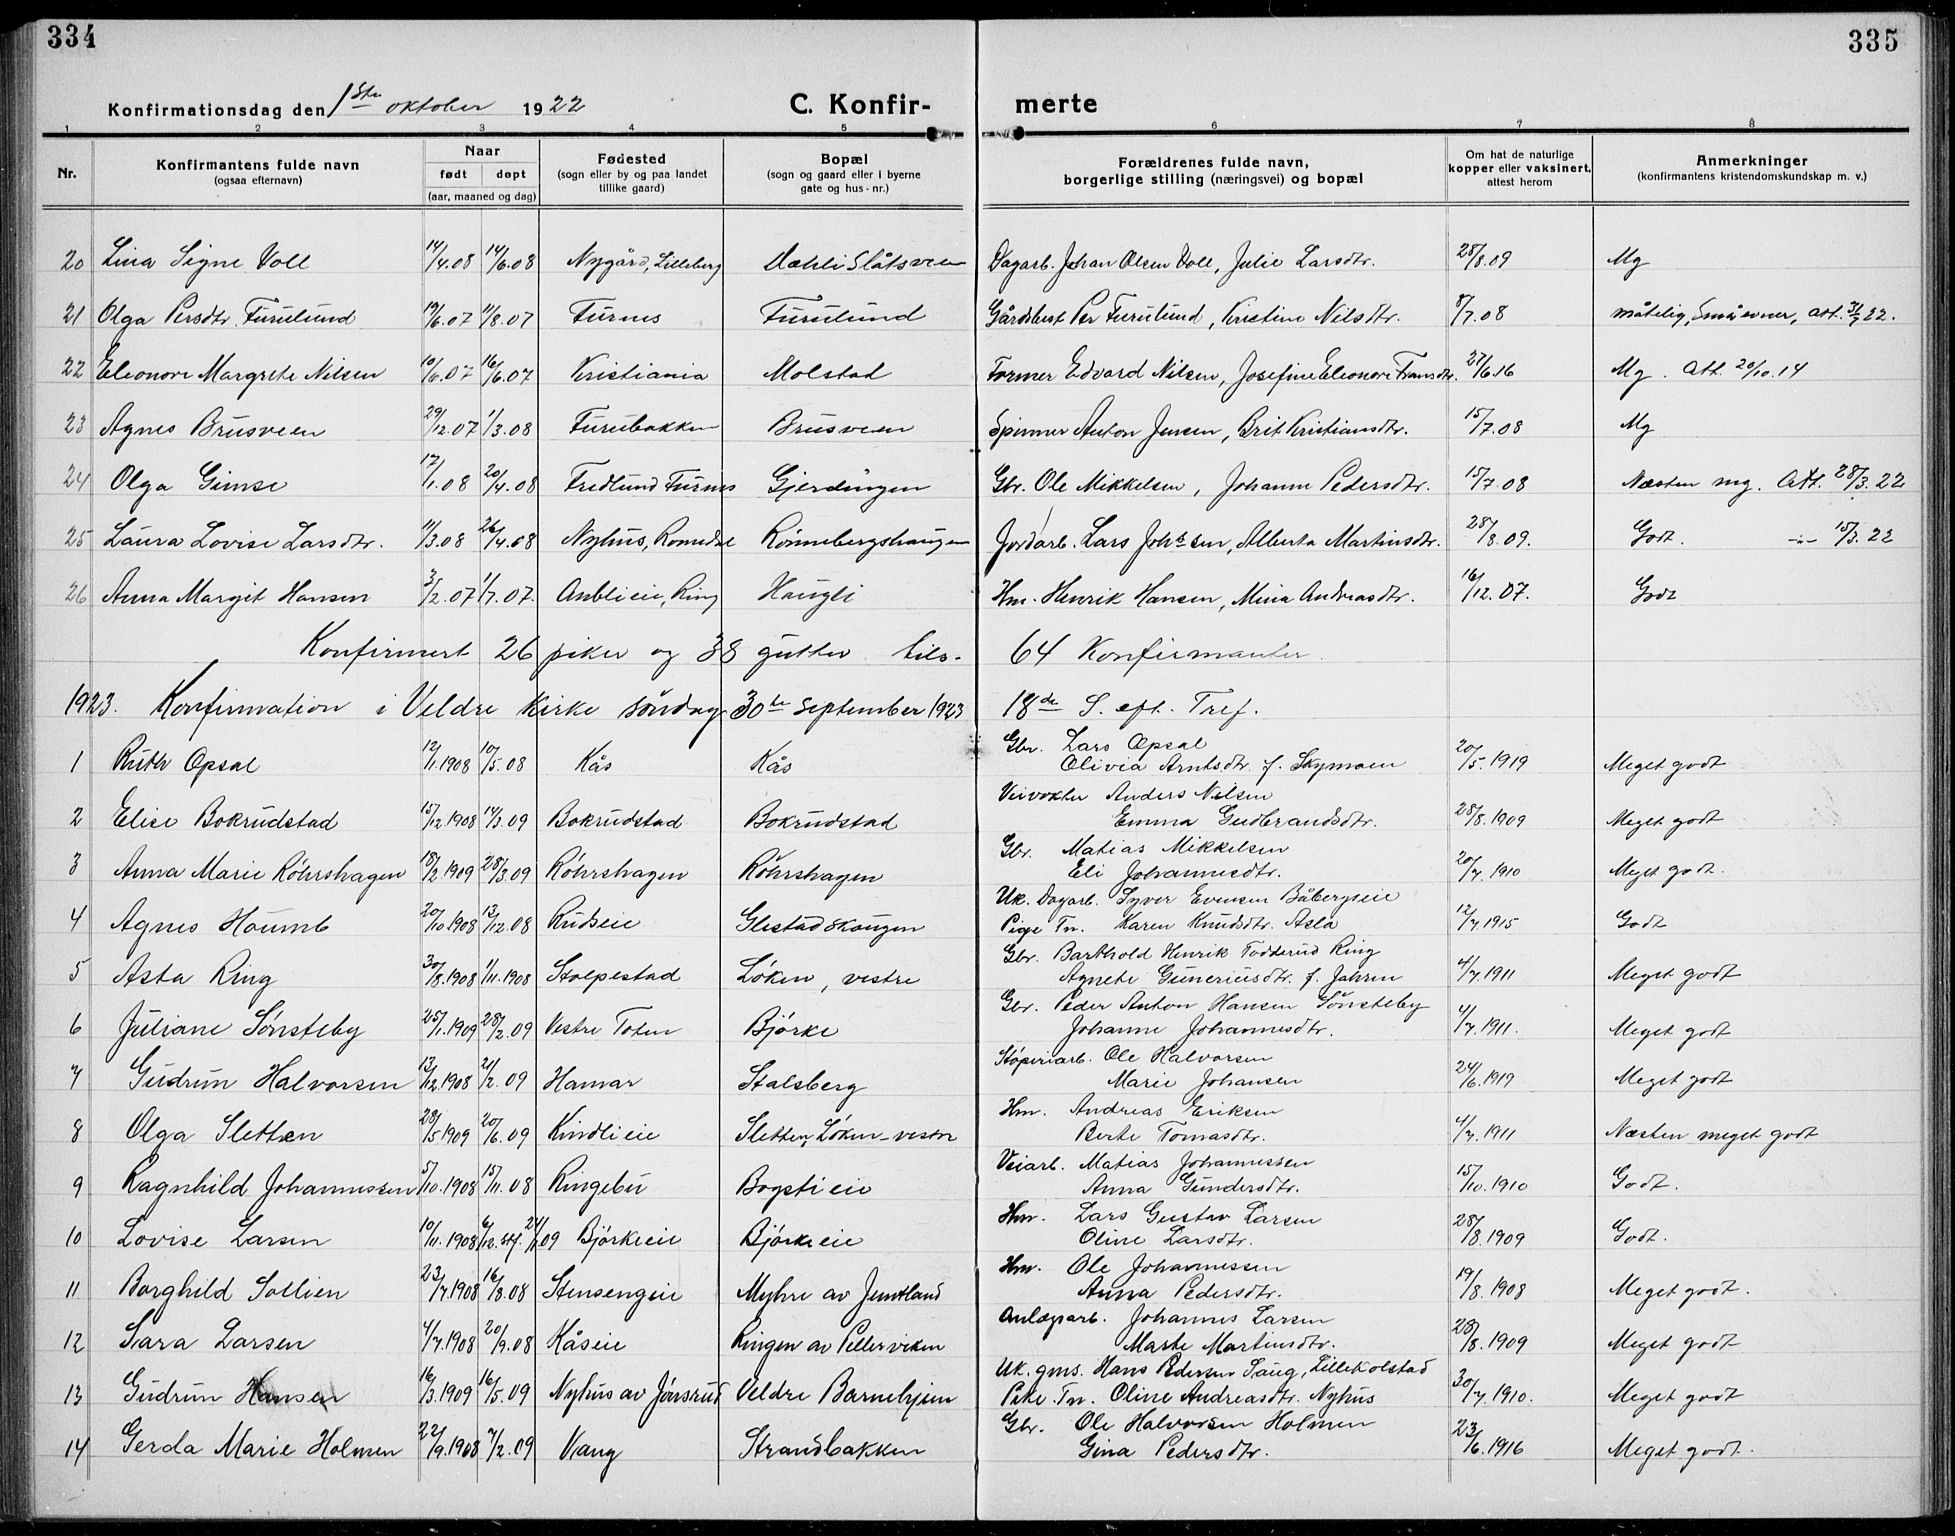 334
335
Konfirmationsdag den 1ste oktober 1922 C. Konfir- merte
1 2 3 4 5 6 7 8
Nr. Konfirmantens fulde navn (ogsaa efternavn) Naar født døpt (aar, maaned og dag) Fødested (sogn eller by og paa landet tillike gaard) Bopæl (sogn og gaard eller i byerne gate og hus-nr.) Forældrenes fulde navn, borgerlige stilling (næringsvei) og bopæl Om hat de naturlige kopper eller vaksinert, attest herom Anmerkninger (konfirmantens kristendomskundskap m. v.)
20 Lina Signe Voll 14/4.08 14/6.08 Nygård, Lilleberg Mæhli Slåtsveen Dagarb. Johan Olsen Voll, Julie Larsdtr. 28/8.09 Mg
21 Olga Persdtr. Furulund 19/6.07 11/8.07 Furnes Furulund Gårdbest Per Furulund, Kristine Nilsdtr. 8/7.08 måtelig, Små evner, att. 22.
22 Eleonore Margrete Nilsen 10/6.07 16/6.07 Kristiania Molstad Former Edvard Nilsen, Josefine Eleonore Fransdtr. 27/6.16 Mg. Att. 20/10.14
23 Agnes Brusveen 29/12.07 1/3.08 Furubakken Brusveen Spinner Anton Jensen, Brit Kristiansdtr. 15/7.08 Mg
24 Olga Gimse 17/1.08 20/4.08 Fredlund Furnes Gjerdingen Gbr. Ole Mikkelsen, Johanne Pedersdtr. 15/7.08 Næsten mg. Att. 28/3.22
25 Laura Lovise Larsdtr. 11/3.08 26/4.08 Nyhus, Romedal Rønnebergshaugen Jordarb. Lars Johssen, Alberta Martinsdtr. 28/8.09. Godt. -"- 15/3.22
26 Anna Margit Hansen 3/2.07 1/7.07. Anbli eie, Ring Haugli Hm. Henrik Hansen, Mina Andreasdtr. 16/12.07. Godt
Konfirmert 26 piker og 38 gutter tils. 64 Konfirmanter.
1923. Konfirmation i Veldre kirke søndag 30te september 1923 18de S. eft. Tref.
1 Ruth Opsal 12/1.1908 10/5.08 Kås Kås Gbr. Lars Opsal
Olivia Arntsdtr. f. Skymoen 20/5.1919 Meget godt
2 Elise Bokrudstad 15/12.1908 14/3.09 Bokrudstad Bokrudstad Veivokter Anders Nilsen
Emma Gudbrandsdtr. 28/8.1909 Meget godt
3 Anna Marie Röhrshagen 18/2.1909 28/3.09 Röhrshagen Röhrshagen Gbr. Matias Mikkelsen
Eli Johannesdtr. 20/7.1910 Meget godt.
4 Agnes Houmb 20/10.1908 13/12.08 Rudseie Glestadskougen Uk. Dagarb. Syver Evensen Båbergseie
Pige Tn. Karen Knudsdtr. Asla 12/7.1915 Godt
5 Asta Ring 30/8.1908 1/11.1908 Stolpestad Løken, vestre Gbr. Barthold Henrik Todderud Ring
Agnete Guneriusdtr. f. Jahren 4/7.1911 Meget godt
6 Juliane Sønsteby 25/1.1909 28/2.09 Vestre Toten Bjørke Gbr. Peder Anton Hansen Sønsteby
Johanne Johannesdtr. 4/7.1911. Meget godt
7 Gudrun Halvorsen 13/12.1908 21/2.09 Hamar Stalsberg Støperiarb. Ole Halvorsen
Marie Johansen 24/6.1919 Meget godt
8 Olga Sletten 28/5 1909 20/6.09 Kindlieie Sletten, Løken-vestre Hm. Andreas Eriksen
Berte Tomasdtr. 4/7.1911 Næsten meget godt
9 Ragnhild Johannessen 5/10.1908 15/11.08 Ringebu Bogsti eie Veiarb. Matias Johannessen
Anna Gundersdtr. 15/10.1910 Godt.
10 Lovise Larsen 10/11.1908 6/12. stf. 24/1 09 Bjørkeeie Bjørkeeie Hm. Lars Gustav Larsen
Oline Larsdtr. 28/8.1909 Godt.
11 Borghild Sollien 23/7.1908 16/8.08 Stensengeie Myhre av Jemtland Hm. Ole Johannessen
Anna Pedersdtr. 19/8.1908 Meget godt.
12 Sara Larsen 4/7.1908 20/9.08 Kåseie Ringen av Pellerviken Anlægsarb. Johannes Larsen
Marte Martinsdtr. 28/8.1909 Meget godt
13 Gudrun Hansen 16/3.1909 16/5.09 Nyhus av Jønsrud Veldre Barnehjem Uk. gms. Hans Pedersen Saug, Lillekolstad
Pike Tn. Oline Andreasdtr. Nyhus 30/7.1910. Meget godt
14 Gerda Marie Holmen 22/9.1908 7/2.09 Vang Strandbakken Gbr. Ole Halvorsen Holmen
Gina Pedersdtr. 23/6.1916 Meget godt.